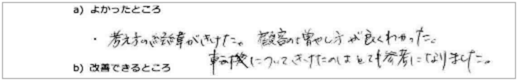 a) よかったところ
・考え方の経緯がきけた。 教宮の増やし方が良くわかった。
転機についてきけたのはとても参考になりました。
b) 改善できるところ